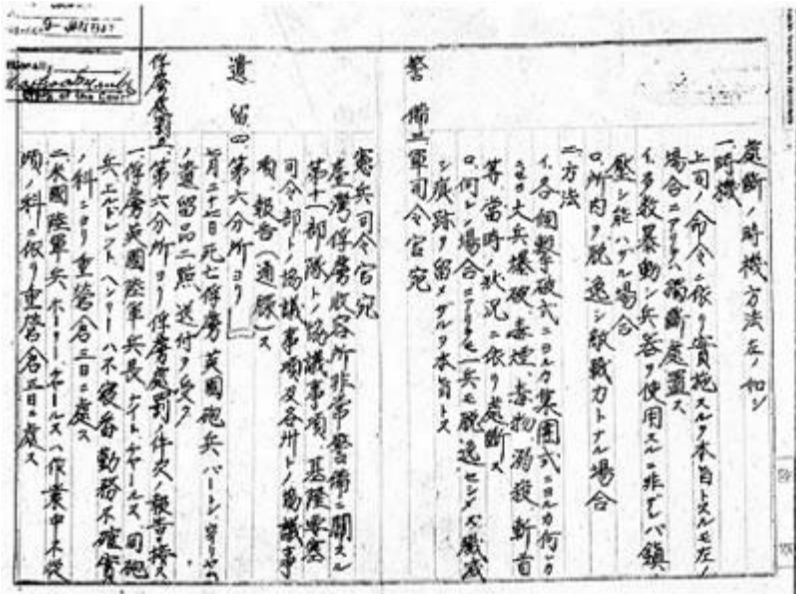 處斷ノ時機方法左ノ如シ
一時機
上司ノ命令ニ依リ實施スルヲ本旨トスルモ左ノ
場合ニアリテハ獨斷處置ス
イ、多数暴動シ兵器ヲ使用スルニ非ザレバ鎮
壓シ能ハザル場合
ロ、所内ヲ脱逸シ敵戦力トナル場合
二方法
イ、各個撃破式ニヨルカ集團式ニヨルカ何レカ
ニセヨ大兵爆破、毒煙、毒物、溺殺、斬首
等當時ノ狀況ニ依リ處断ス
ロ、何レノ場合ニアリテモ一兵モ脱逸セシメズ殲滅
シ痕跡ヲ留メザルヲ本旨トス
警備二軍司令官宛
憲兵司令官宛
臺灣俘虜收容所非常警備ニ關スル
第十一部隊トノ協議事項、基隆要塞
司令部トノ協議事項及各州トノ協議事
項、報告(通牒)ス
遺留四第六分所ヨリ
七月二十七日死亡俘虜英國砲兵バートン
ノ遺留品二點送付ヲ受ク
俘虜處罰五第六分所ヨリ俘虜處罰ノ件次ノ報告ニ接ス
一俘虜英國陸軍兵長ナイトチャールス、同砲
兵エルドレットヘンリーハ不寝番勤務不確實
ノ科ニヨリ重營倉三日ニ處ス
二米國陸軍兵ホーリーネールスハ作業中不從
順ノ科ニ依リ重營倉三日ニ處ス
of the Court